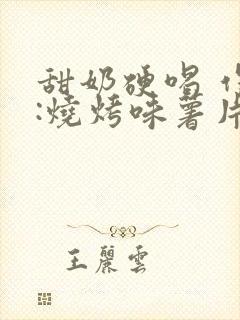 甜奶硬唱
:燒烤味薯片
王麗雲